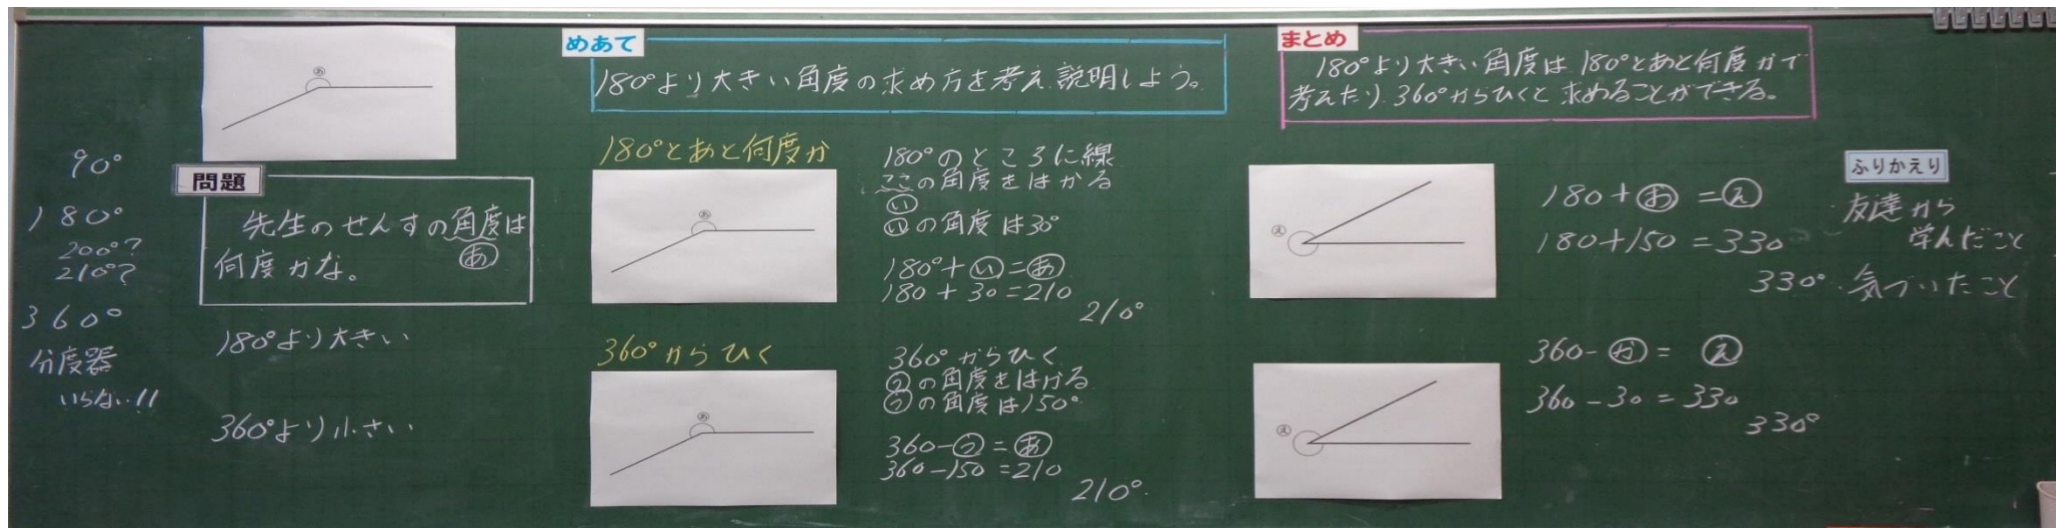 90°
180°
200°?
210°?
360°
分度器
いらない!!
あ
問題
先生のせんすの角度は
あ
何度かな。
180°より大きい
360°より小さい
めあて
180°より大きい角度の求め方を考え説明しよう。
180°とあと何度か
あ
180°のところに線
ここの角度をはかる
い
いの角度は30°
180°+い=あ
180+30=210
210°
360°からひく
あ
360°からひく
うの角度をはかる
うの角度は150°
360-う=あ
360-150=210
210°
まとめ
180°より大きい角度は180°とあと何度かで
考えたり360°からひくと求めることができる。
え
180+お=え
180+150=330
330°
え
360-か=え
360-30=330
330°
ふりかえり
・友達から
学んだこと
・気づいたこと